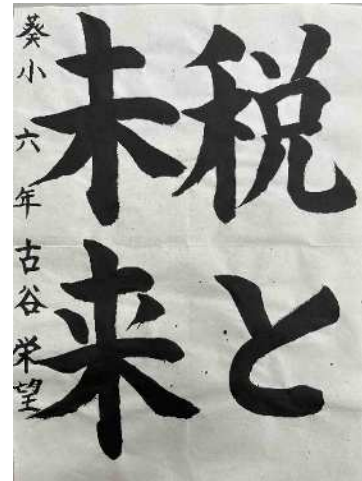 税と
未来
葵小 六年 古谷栄望